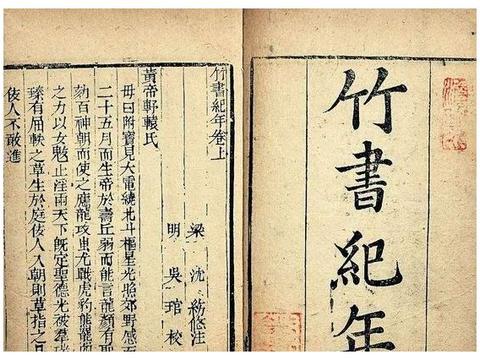 竹書紀年
竹書紀年卷上
梁 沈約附注
明 吳琯校
黃帝軒轅氏
母曰附寶見大電繞北斗樞星光照郊野感而
二十五月而生帝於壽丘弱而能言龍顏有
劾百神朝而使之應龍攻蚩尤戰虎豹熊羆
之力以女魃止淫雨天下既定聖德光被群
臻有屈軼之草生於庭佞人入朝則草指之
佞人不敢進